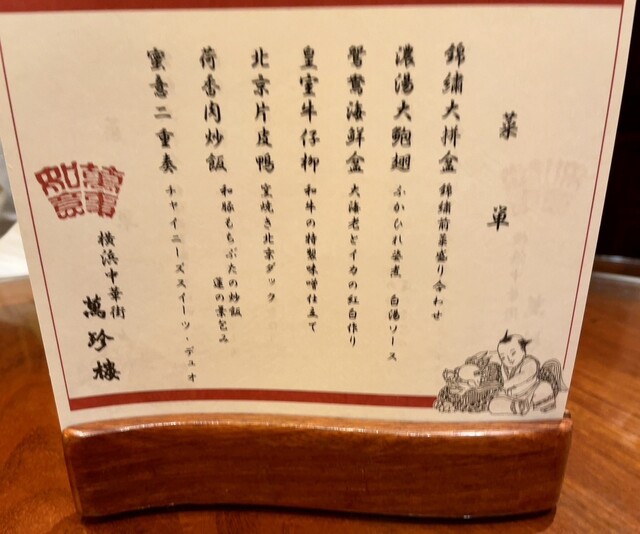 菜単
錦繍大拼盆 錦繍前菜盛り合わせ
濃湯大鮑翅 ふかひれ姿煮 白湯ソース
鴛鴦海鮮盒 大海老とイカの紅白作り
皇室牛仔柳 和牛の特製味噌仕立て
北京片皮鴨 窯焼き北京ダック
荷香肉炒飯 和豚もちぶたの炒飯
蓮の葉包み
蜜意二重奏 チャイニーズスイーツ・デュオ
萬事如意
横浜中華街
萬珍樓